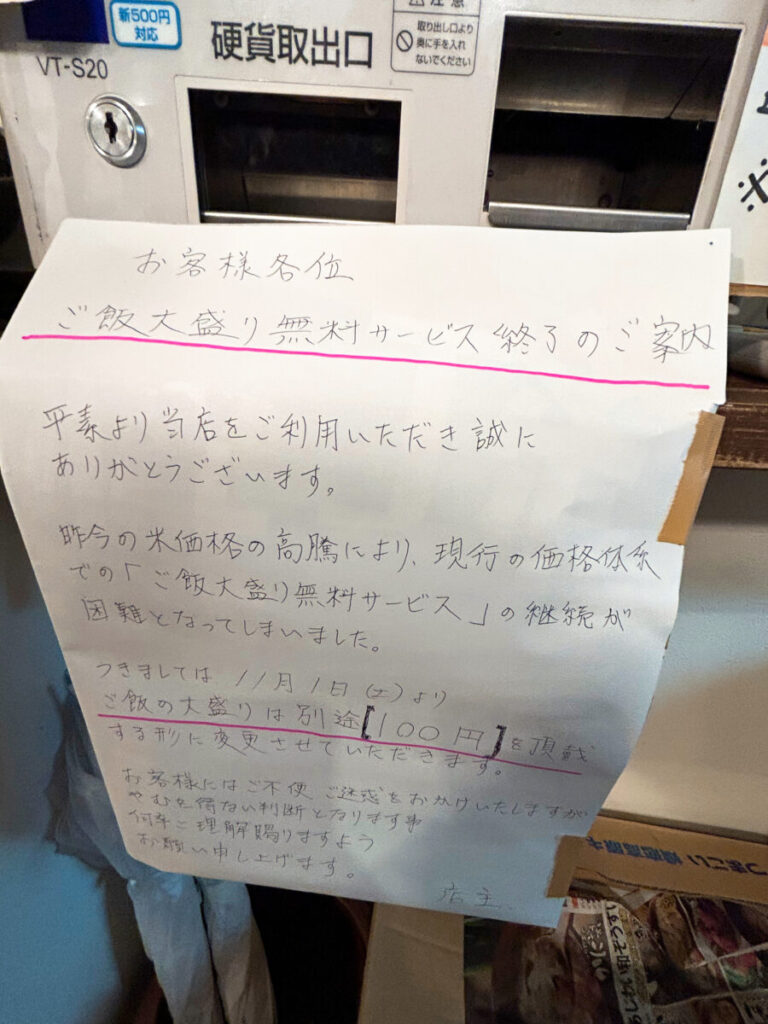 新500円
対応
VT-S20
硬貨取出口
注意
取り出し口より
奥に手を入れ
ないでください
お客様各位
ご飯大盛り無料サービス終了のご案内
平素より当店をご利用いただき誠に
ありがとうございます。
昨今の米価格の高騰により、現行の価格体系
での「ご飯大盛り無料サービス」の継続が
困難となってしまいました。
つきましては 11月1日(土)より
ご飯の大盛りは別途【100円】を頂戴
する形に変更させていただきます。
お客様にはご不便、ご迷惑をおかけいたしますが
やむを得ない判断となります事
何卒ご理解賜りますよう
お願い申し上げます。
店主